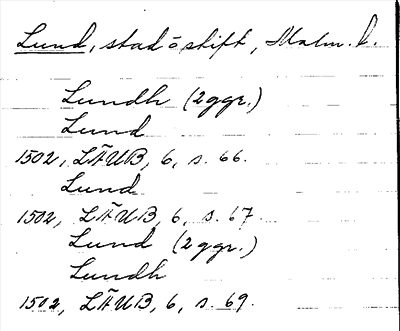 Lund, stad o stift, Malm. l.
Lundh (2 ggr.)
Lund
1502, LÄUB, 6, s. 66.
Lund
1502, LÄUB, 6, s. 67.
Lund (2 ggr.)
Lundh
1502, LÄUB, 6, s. 69.